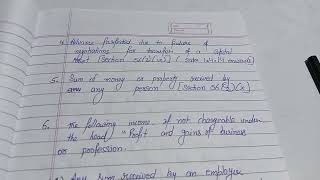 4. Advance forfeited due to failure of
negotiations for transfer of a capital
Asset [Section 56(2)(ix)]
5. Sum of money or property received by
any person [Section 56(2)(x)]
6. The following income, if not chargeable under
the head, "Profit and gains of business
or profession.
Any sum received by an employer